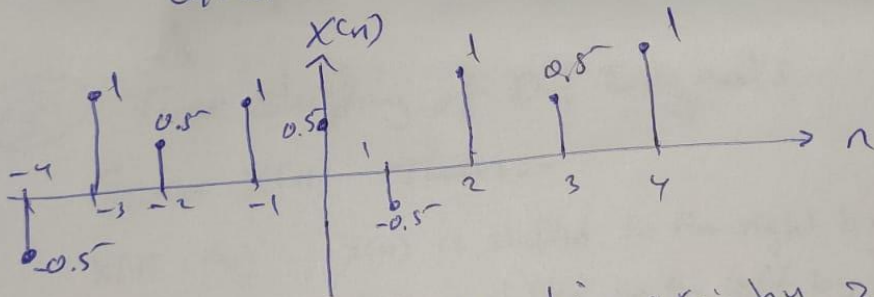 X(n)
1 0.5 1 0.5 1 0.5 1
-4 -3 -2 -1 1 2 3 4 n
-0.5 -0.5